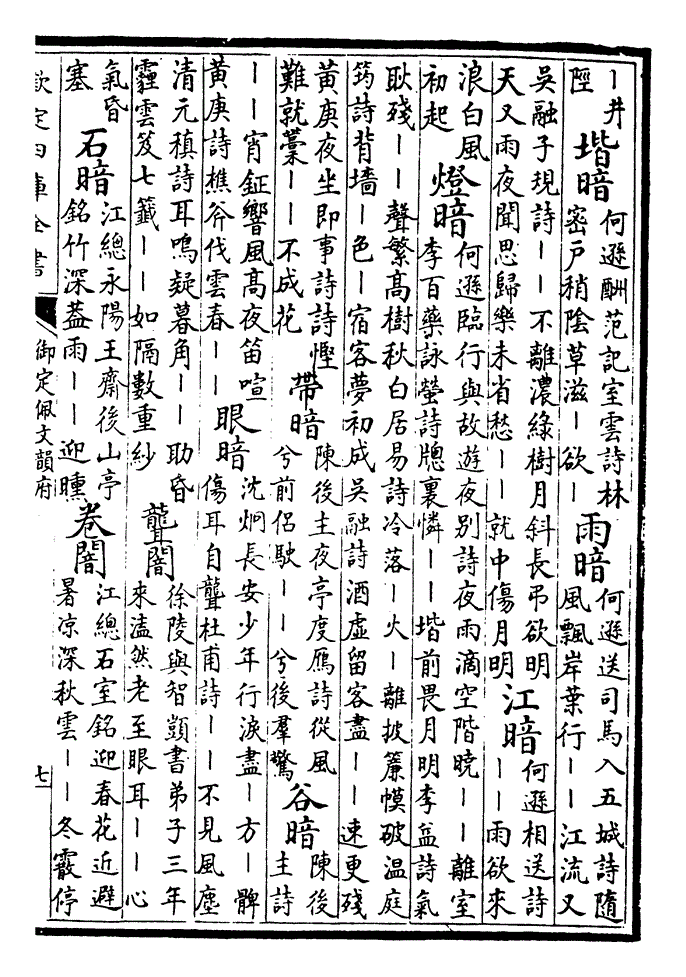 ｜井
陘
堦暗
何遜酬范記室雲詩林
密戶稍陰草滋｜欲｜
雨暗
何遜送司馬入五城詩隨
風飄岸葉行｜｜江流又
吳融子規詩｜｜不離濃綠樹月斜長弔欲明
天又雨夜聞思歸樂未省愁｜｜就中傷月明
江暗
何遜相送詩
｜｜雨欲來
浪白風
初起
燈暗
何遜臨行與故遊夜別詩夜雨滴空階曉｜｜離室
李百藥詠螢詩牕裏憐｜｜堦前畏月明李益詩氣
耿殘｜｜聲繁高樹秋白居易詩冷落｜火｜離披簾幙破温庭
筠詩背墻｜色｜宿客夢初成吳融詩酒虛留客盡｜｜速更殘
黃庚夜坐即事詩詩慳
難就藁｜｜不成花
帶暗
陳後主夜亭度鴈詩從風
兮前侶駛｜｜兮後羣驚
谷暗
陳後
主詩
｜｜宵鉦響風高夜笛喧
黃庚詩樵斧伐雲春｜｜
眼暗
沈烱長安少年行淚盡｜方｜髀
傷耳自聾杜甫詩｜｜不見風塵
清元稹詩耳鳴疑暮角｜｜助昏
霾雲笈七籤｜｜如隔數重紗
聾闇
徐陵與智顗書弟子三年
來溘然老至眼耳｜｜心
氣昏
塞
石暗
江總永陽王齋後山亭
銘竹深葢雨｜｜迎曛
卷闇
江總石室銘迎春花近避
暑凉深秋雲｜｜冬霰停
欽定四庫全書
御定佩文韻府
七